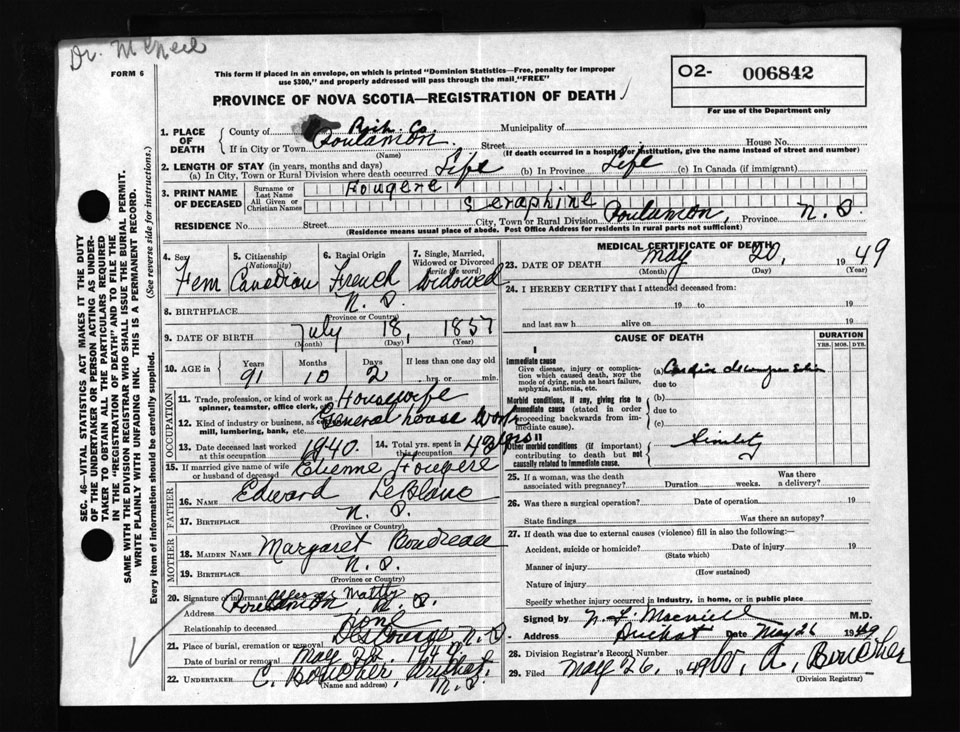 Dr. McNeil
FORM 6
This form if placed in an envelope, on which is printed "Dominion Statistics—Free, penalty for improper
use $300," and properly addressed will pass through the mail "FREE"
O2- 006842
For use of the Department only
PROVINCE OF NOVA SCOTIA—REGISTRATION OF DEATH
1. PLACE OF DEATH
County of Rich. Co Municipality of
If in City or Town Poulamon Street House No.
(Name) (If death occurred in a hospital or institution, give the name instead of street and number)
2. LENGTH OF STAY (in years, months and days)
(a) In City, Town or Rural Division where death occurred Life (b) In Province Life (c) In Canada (if immigrant)
3. PRINT NAME OF DECEASED
Surname or Last Name Fougere
All Given or Christian Names Seraphine
RESIDENCE No. Street City, Town or Rural Division Poulamon, Province N. S.
(Residence means usual place of abode. Post Office Address for residents in rural parts not sufficient)
4. Sex Fem
5. Citizenship (Nationality) Canadian
6. Racial Origin French
7. Single, Married, Widowed or Divorced (write the word) Widowed
8. BIRTHPLACE N. S.
(Province or Country)
9. DATE OF BIRTH July 18, 1857
(Month) (Day) (Year)
10. AGE in Years Months Days If less than one day old
91 10 2 hrs. or min.
OCCUPATION
11. Trade, profession, or kind of work as spinner, teamster, office clerk, Housewife
12. Kind of industry or business, as mill, lumbering, bank, etc. General house Work
13. Date deceased last worked at this occupation 1940.
14. Total yrs. spent in this occupation
15. If married give name of wife or husband of deceased Etienne Fougere
FATHER
16. NAME Edward LeBlanc
17. BIRTHPLACE N. S.
(Province or Country)
MOTHER
18. MAIDEN NAME Margaret Boudreau
19. BIRTHPLACE N. S.
(Province or Country)
20. Signature of informant
Address Poulamon, N. S.
Relationship to deceased None
21. Place of burial, cremation or removal N. S.
Date of burial or removal May 22, 1949.
22. UNDERTAKER C. Boucher, Arichat, N. S.
(Name and address)
MEDICAL CERTIFICATE OF DEATH
23. DATE OF DEATH May 20, 1949
(Month) (Day) (Year)
24. I HEREBY CERTIFY that I attended deceased from:
19 to 19
and last saw h alive on 19
CAUSE OF DEATH
DURATION
YRS. MOS. DYS.
I
Immediate cause
Give disease, injury or complication which caused death, not the mode of dying, such as heart failure, asphyxia, asthenia, etc.
(a) Cardiac decompensation
due to
Morbid conditions, if any, giving rise to immediate cause (stated in order proceeding backwards from immediate cause).
(b)
due to
(c)
II
Other morbid conditions (if important) contributing to death but not causally related to immediate cause.
25. If a woman, was the death associated with pregnancy? Duration weeks. Was there a delivery?
26. Was there a surgical operation? Date of operation 19
State findings Was there an autopsy?
27. If death was due to external causes (violence) fill in also the following:—
Accident, suicide or homicide? Date of injury 19
(State which)
Manner of injury
(How sustained)
Nature of injury
Specify whether injury occurred in industry, in home, or in public place
Signed by M.D.
Address Arichat Date May 26 1949
28. Division Registrar's Record Number
29. Filed May 26, 1949 A. Boucher
(Division Registrar)
SEC. 46—VITAL STATISTICS ACT MAKES IT THE DUTY
OF THE UNDERTAKER OR PERSON ACTING AS UNDER-
TAKER TO OBTAIN ALL THE PARTICULARS REQUIRED
IN THE "REGISTRATION OF DEATH" AND TO FILE THE
SAME WITH THE DIVISION REGISTRAR WHO SHALL ISSUE THE BURIAL PERMIT.
WRITE PLAINLY WITH UNFADING INK. THIS IS A PERMANENT RECORD.
Every item of information should be carefully supplied. (See reverse side for instructions.)